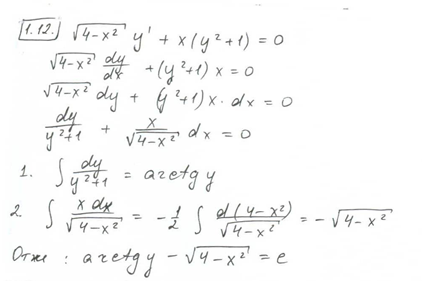 1.12. √(4-x²) y' + x(y²+1) = 0
√(4-x²) dy/dx + (y²+1)x = 0
√(4-x²) dy + (y²+1)x·dx = 0
dy/(y²+1) + x/√(4-x²) dx = 0
1. ∫ dy/(y²+1) = arctg y
2. ∫ x dx/√(4-x²) = -1/2 ∫ d(4-x²)/√(4-x²) = -√(4-x²)
Отже: arctg y - √(4-x²) = c